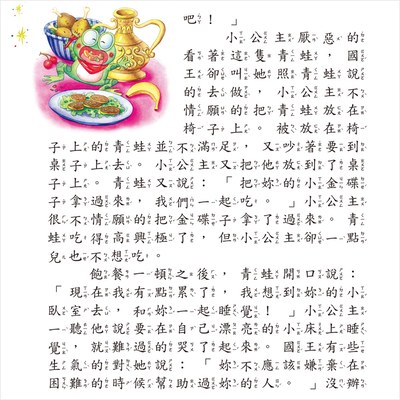 吧！」
小公主厭惡的
看著這隻青蛙，國
王卻叫她照青蛙說
的去做，小公主不
情願的把青蛙放在
椅子上。被放在椅
子上的青蛙並不滿足，又吵著要到
桌子上去。小公主又把他放到了桌
子上。青蛙又說：「把妳的小金碟
子拿過來，我們一起吃。」小公主
很不情願的把金碟子拿了過來。青
蛙吃得高興極了，但小公主卻一點
兒也不想吃。
飽餐一頓之後，青蛙開口說：
「現在我有點累了，我想到妳的小
臥室去，和妳一起睡覺！」小公主
一聽他說要在自己漂亮的小床上睡
覺，就難過的哭了起來。國王有些
生氣的對她說：「妳不應該嫌棄在
困難的時候幫助過妳的人。」沒辦